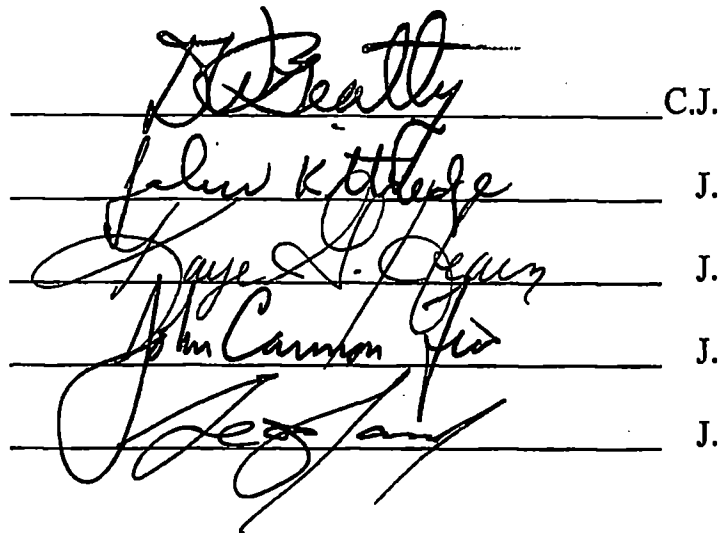 D W Beatty C.J.
John W Kittredge J.
Kaye G. Hearn J.
John Cannon Few J.
J.